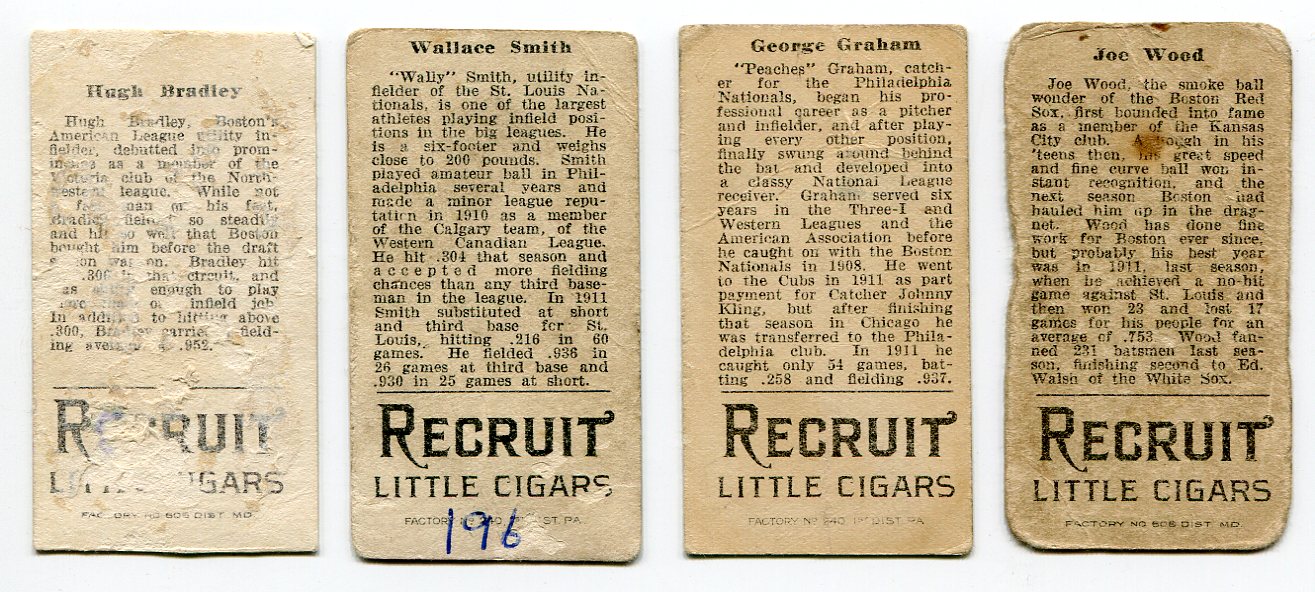 Hugh Bradley
Hugh Bradley, Boston's
American League utility in-
fielder, debutted into prom-
as a member of the
Victoria club of the North-
western league. While not
a fast man on his feet,
Bradley fielded so steadily
and hit so well that Boston
bought him before the draft
on was on. Bradley hit
.300 in that circuit, and
as enough to play
infield job
In addition to hitting above
.300, Bradley carried a field-
ing average of .952.
RECRUIT
LITTLE CIGARS
FACTORY NO 606 DIST. MD.
Wallace Smith
"Wally" Smith, utility in-
fielder of the St. Louis Na-
tionals, is one of the largest
athletes playing infield posi-
tions in the big leagues. He
is a six-footer and weighs
close to 200 pounds. Smith
played amateur ball in Phil-
adelphia several years and
made a minor league repu-
tation in 1910 as a member
of the Calgary team, of the
Western Canadian League.
He hit .304 that season and
accepted more fielding
chances than any third base-
man in the league. In 1911
Smith substituted at short
and third base for St.
Louis, hitting .216 in 60
games. He fielded .936 in
26 games at third base and
.930 in 25 games at short.
RECRUIT
LITTLE CIGARS
FACTORY Nº 240, 1ST DIST. PA.
196
George Graham
"Peaches" Graham, catch-
er for the Philadelphia
Nationals, began his pro-
fessional career as a pitcher
and infielder, and after play-
ing every other position,
finally swung around behind
the bat and developed into
a classy National League
receiver. Graham served six
years in the Three-I and
Western Leagues and the
American Association before
he caught on with the Boston
Nationals in 1908. He went
to the Cubs in 1911 as part
payment for Catcher Johnny
Kling, but after finishing
that season in Chicago he
was transferred to the Phila-
delphia club. In 1911 he
caught only 54 games, bat-
ting .258 and fielding .937.
RECRUIT
LITTLE CIGARS
FACTORY Nº 240, 1ST DIST. PA.
Joe Wood
Joe Wood, the smoke ball
wonder of the Boston Red
Sox, first bounded into fame
as a member of the Kansas
City club. Although in his
'teens then, his great speed
and fine curve ball won in-
stant recognition, and the
next season Boston had
hauled him up in the drag-
net. Wood has done fine
work for Boston ever since,
but probably his best year
was in 1911, last season,
when he achieved a no-hit
game against St. Louis and
then won 23 and lost 17
games for his people for an
average of .753. Wood fan-
ned 231 batsmen last sea-
son, finishing second to Ed.
Walsh of the White Sox.
RECRUIT
LITTLE CIGARS
FACTORY NO 606 DIST. MD.